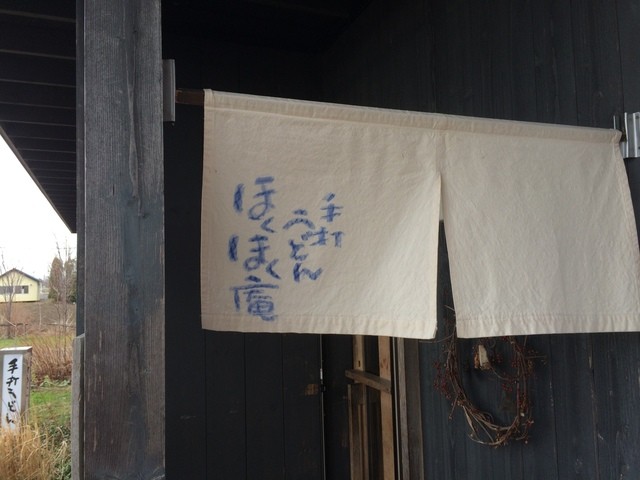 手打
うどん
ほくほく庵
手打うどん